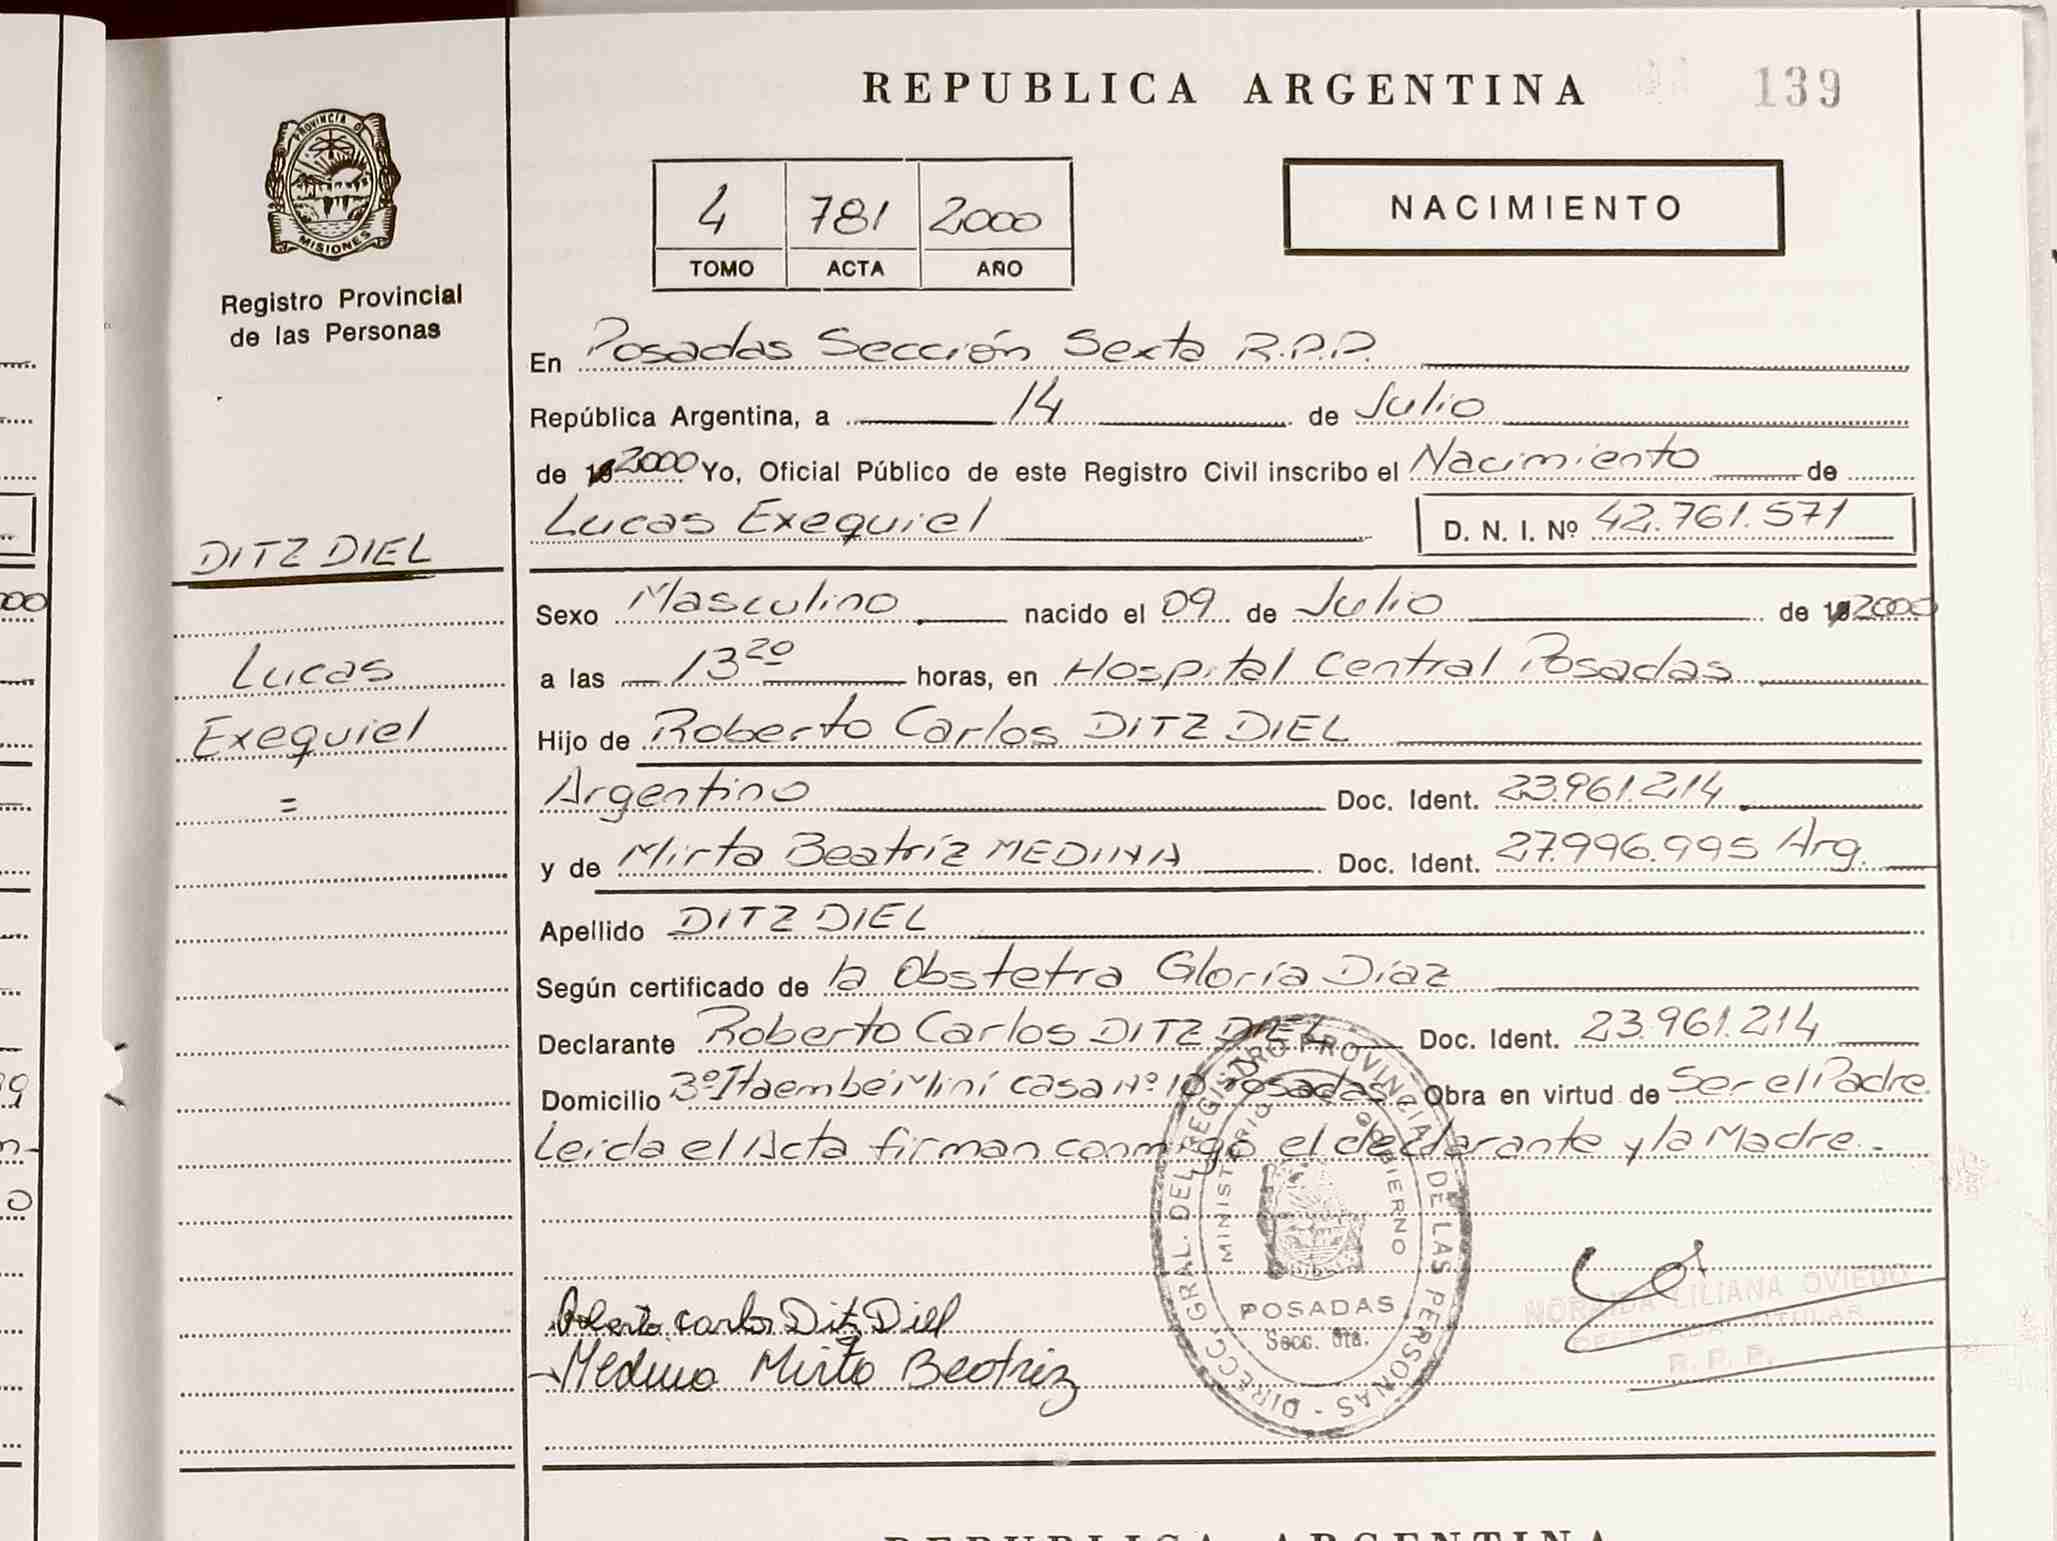 REPUBLICA ARGENTINA
139
PROVINCIA DE
MISIONES
Registro Provincial
de las Personas
4 781 2000
TOMO ACTA AÑO
NACIMIENTO
En Posadas Sección Sexta R.P.P.
República Argentina, a 14 de Julio
de 2000 Yo, Oficial Público de este Registro Civil inscribo el Nacimiento de
Lucas Exequiel D. N. I. Nº 42.761.571
DITZ DIEL
Sexo Masculino nacido el 09 de Julio de 2000
Lucas
a las 13 20 horas, en Hospital Central Posadas
Exequiel
=
Hijo de Roberto Carlos DITZ DIEL
Argentino Doc. Ident. 23.961.214
y de Mirta Beatríz MEDINA Doc. Ident. 27.996.995 Arg.
Apellido DITZ DIEL
Según certificado de la Obstetra Gloría Díaz
Declarante Roberto Carlos DITZ DIEL Doc. Ident. 23.961.214
Domicilio Bº Itaembé Miní casa Nº 10 Posadas Obra en virtud de Ser el Padre.
Leída el Acta firman conmigo el declarante y la Madre.-
Roberto Carlos Ditz Diel
Medina Mirta Beatriz
DIRECC. GRAL. DEL REGISTRO PROVINCIAL DE LAS PERSONAS -
MINISTERIO DE GOBIERNO
POSADAS
Secc. 6ta.
NORAIDA LILIANA OVIEDO
DELEGADA TITULAR
R. P. P.
REPUBLICA ARGENTINA